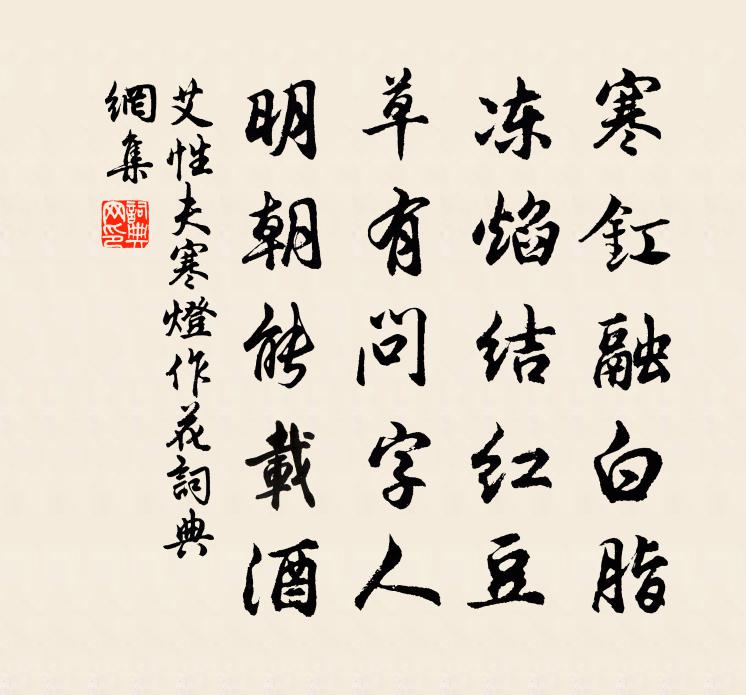 寒釭融白脂
冻焰结红豆
草有问字人
明朝能載酒
艾性夫寒燈作花詞典
網集
詞典
网印